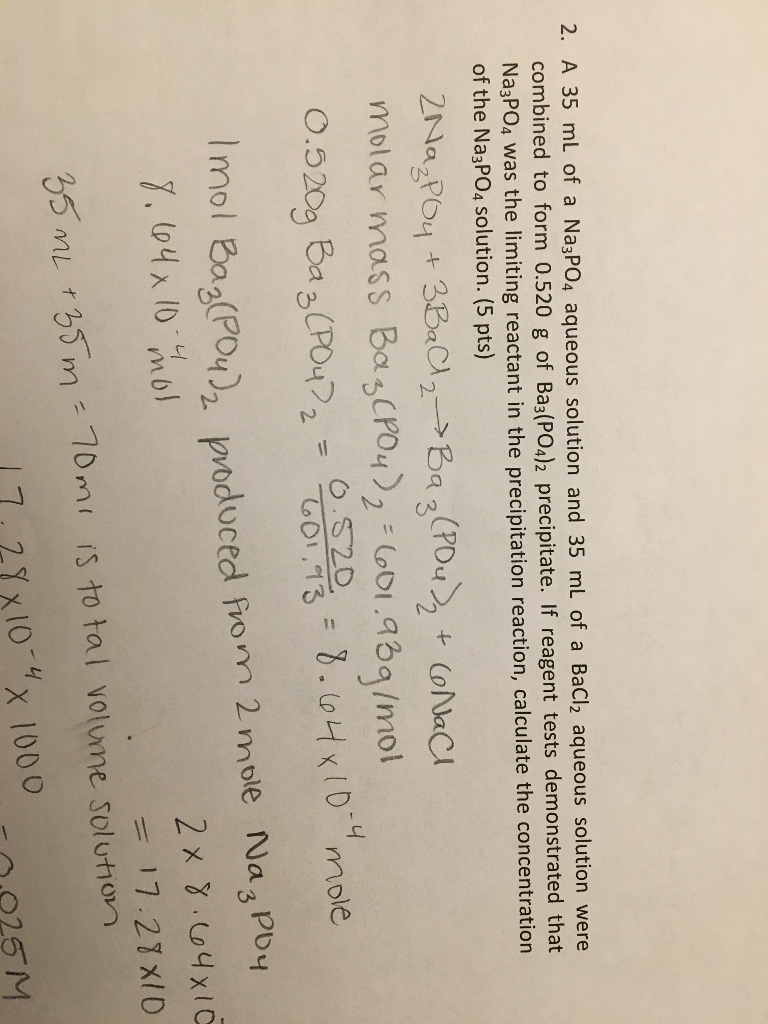 2. A 35 mL of a Na₃PO₄ aqueous solution and 35 mL of a BaCl₂ aqueous solution were
combined to form 0.520 g of Ba₃(PO₄)₂ precipitate. If reagent tests demonstrated that
Na₃PO₄ was the limiting reactant in the precipitation reaction, calculate the concentration
of the Na₃PO₄ solution. (5 pts)
2Na₃PO₄ + 3BaCl₂ → Ba₃(PO₄)₂ + 6NaCl
molar mass Ba₃(PO₄)₂ = 601.93g/mol
0.520g Ba₃(PO₄)₂ = 0.520/601.93 = 8.64 x 10⁻⁴ mole
1 mol Ba₃(PO₄)₂ produced from 2 mole Na₃PO₄
8.64 x 10⁻⁴ mol 2 x 8.64 x 10
= 17.28 x 10
35 mL + 35 m = 70 ml is total volume solution
17.28 x 10⁻⁴ x 1000 = 0.025 M